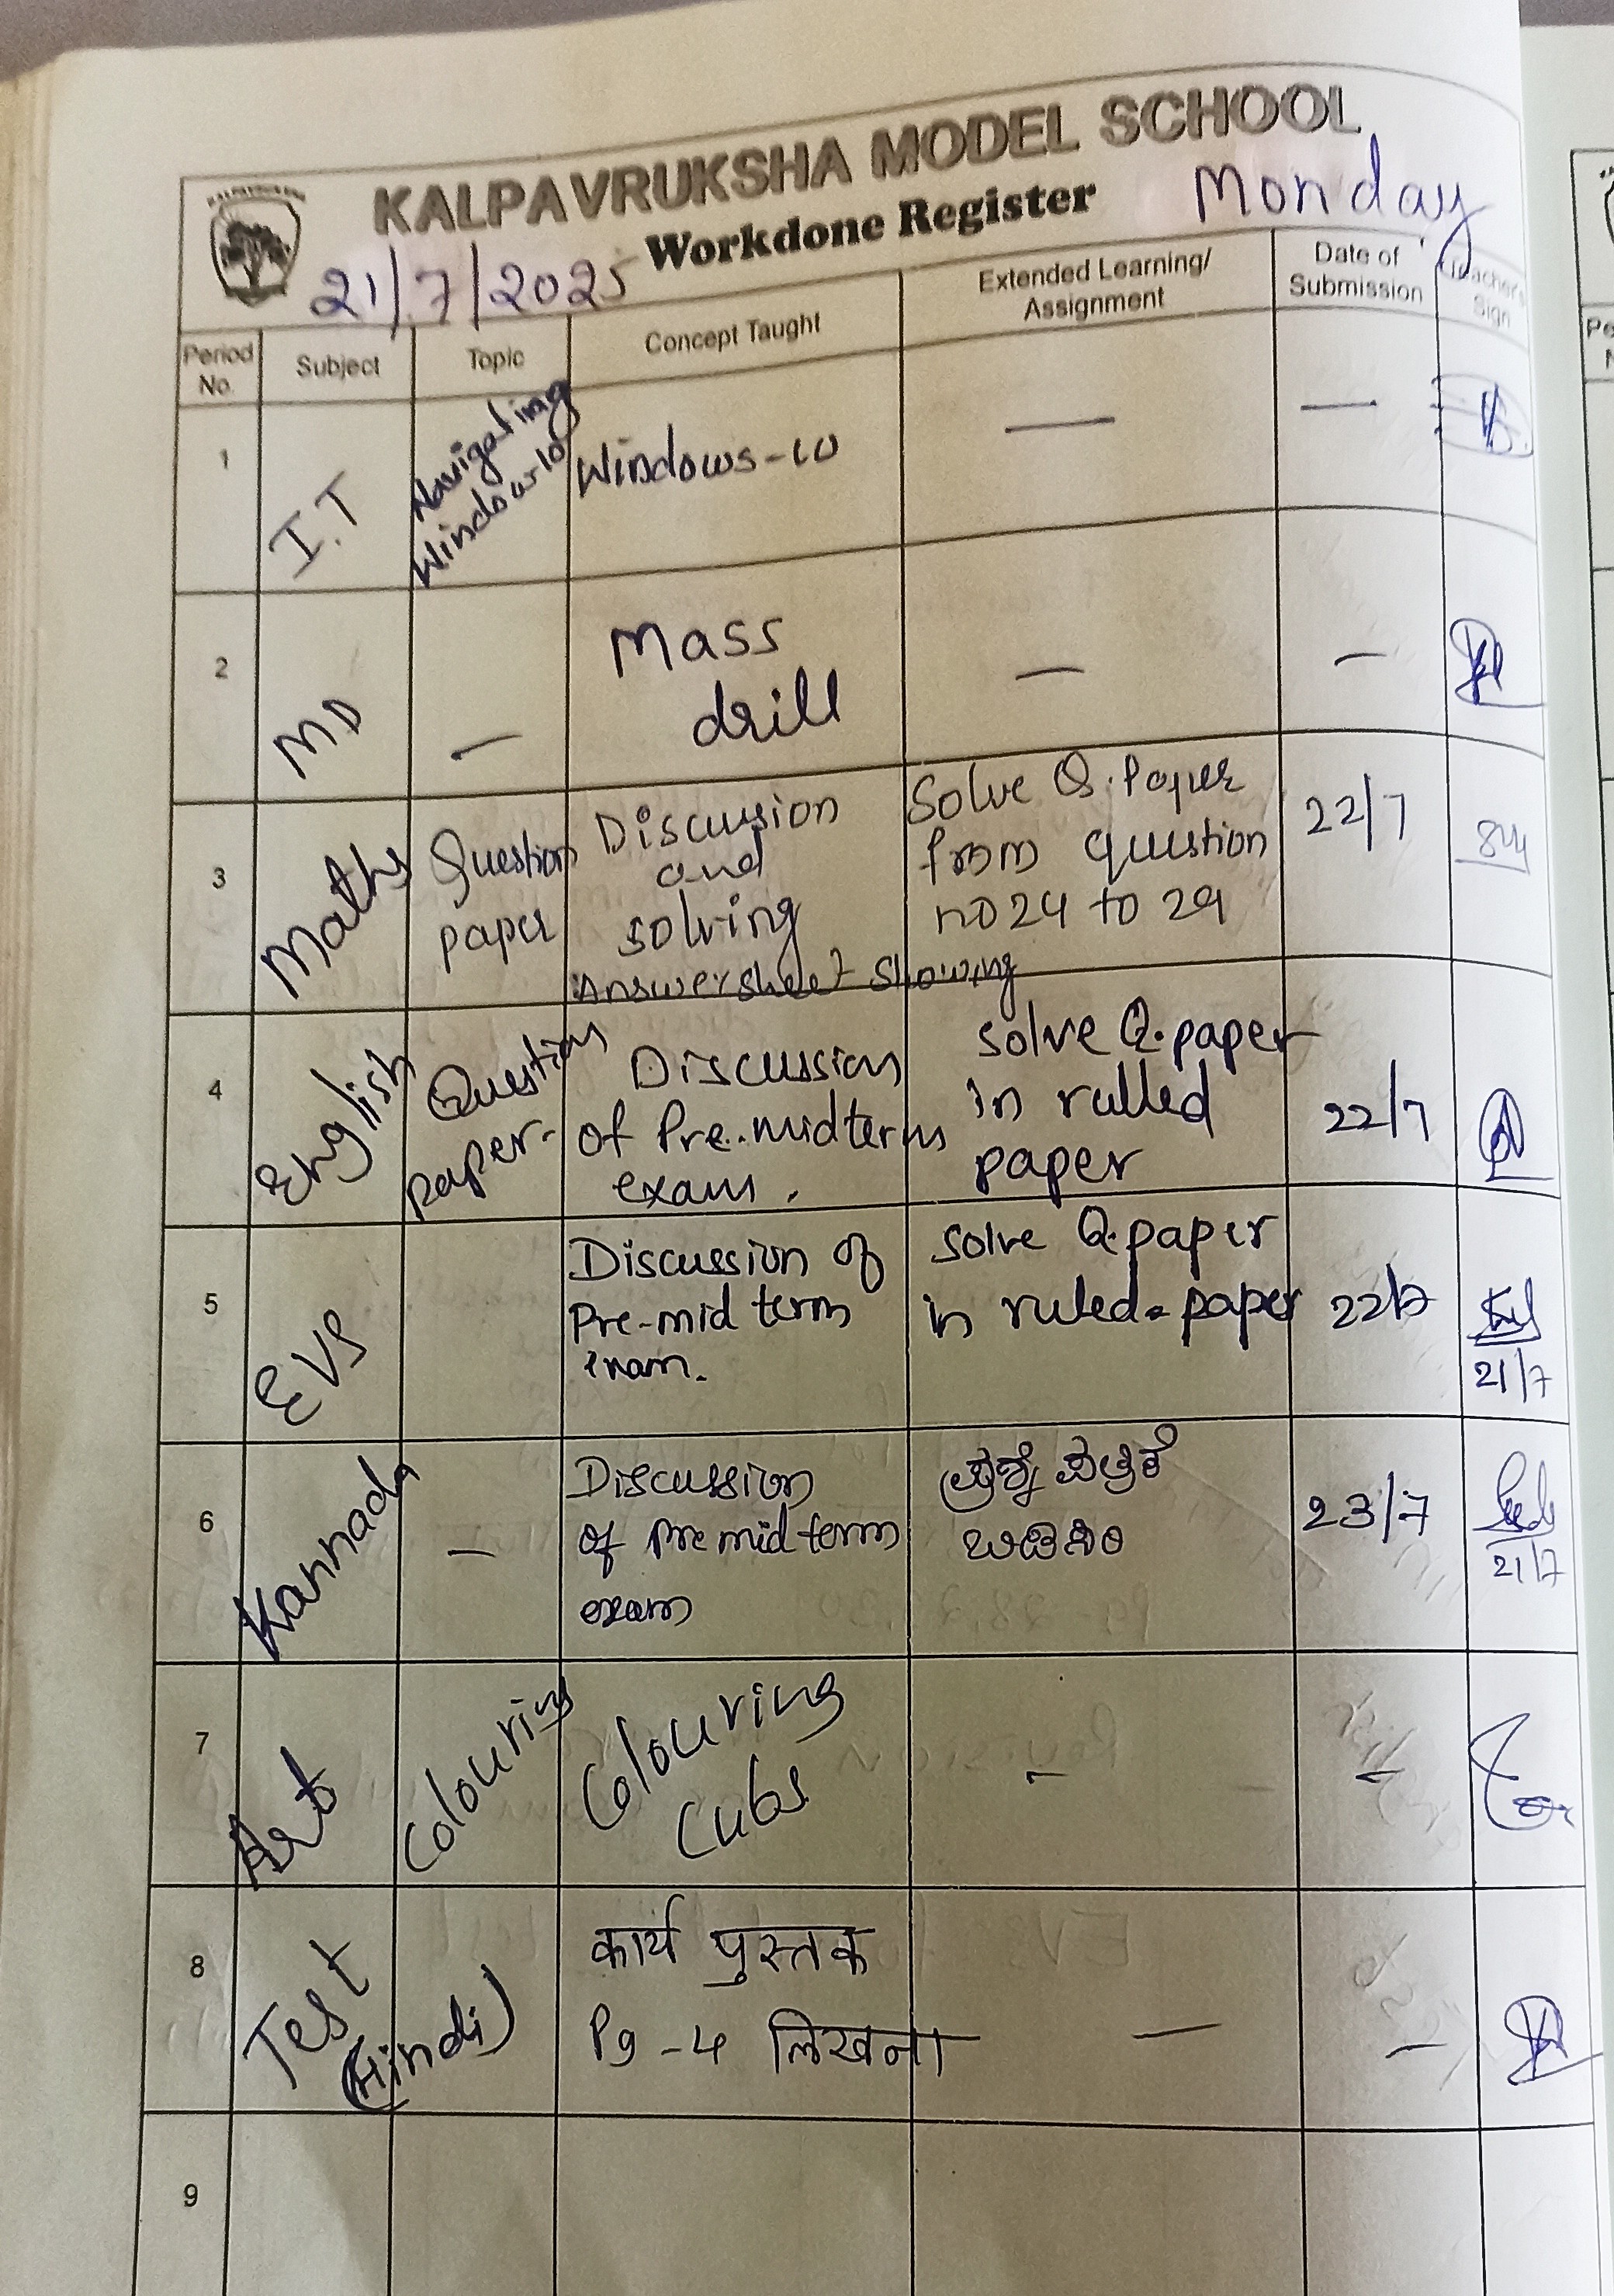 KALPAVRUKSHA MODEL SCHOOL
Workdone Register
Monday
21/7/2025
Period No.
Subject
Topic
Concept Taught
Extended Learning/
Assignment
Date of
Submission
Teacher's
Sign
1
I.T
Navigating
Windows-10
Windows-10
—
—
2
MD
—
Mass
drill
—
—
3
Maths
Question
paper
Discussion
and
solving
Answer sheet showing
Solve Q.Paper
from question
no 24 to 29
22/7
4
English
Question
paper-
Discussion
of Pre-midterm
exam.
solve Q.paper
in rulled
paper
22/7
5
EVS
Discussion of
Pre-mid term
exam.
solve Q.paper
in ruled-paper
22/7
21/7
6
Kannada
—
Discussion
of pre mid term
exam
ಪ್ರಶ್ನೆ ಪತ್ರಿಕೆ
23/7
21/7
7
Art
Colouring
Colouring
Cubs
-
-
8
Test
(Hindi)
कार्य पुस्तक
Pg-4 लिखना
—
—
9